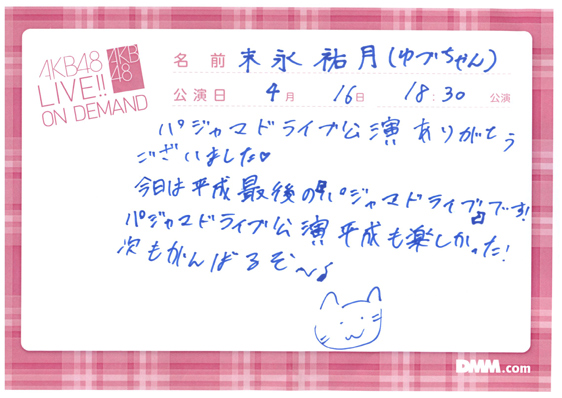 AKB48
LIVE!!
ON DEMAND
AKB
48
名前 末永祐月(ゆづちゃん)
公演日 4月 16日 18:30 公演
パジャマドライブ公演ありがとう
ございました♡
今日は平成最後のパジャマドライブです!
パジャマドライブ公演平成も楽しかった!
次もがんばるぞ〜♪
DMM.com